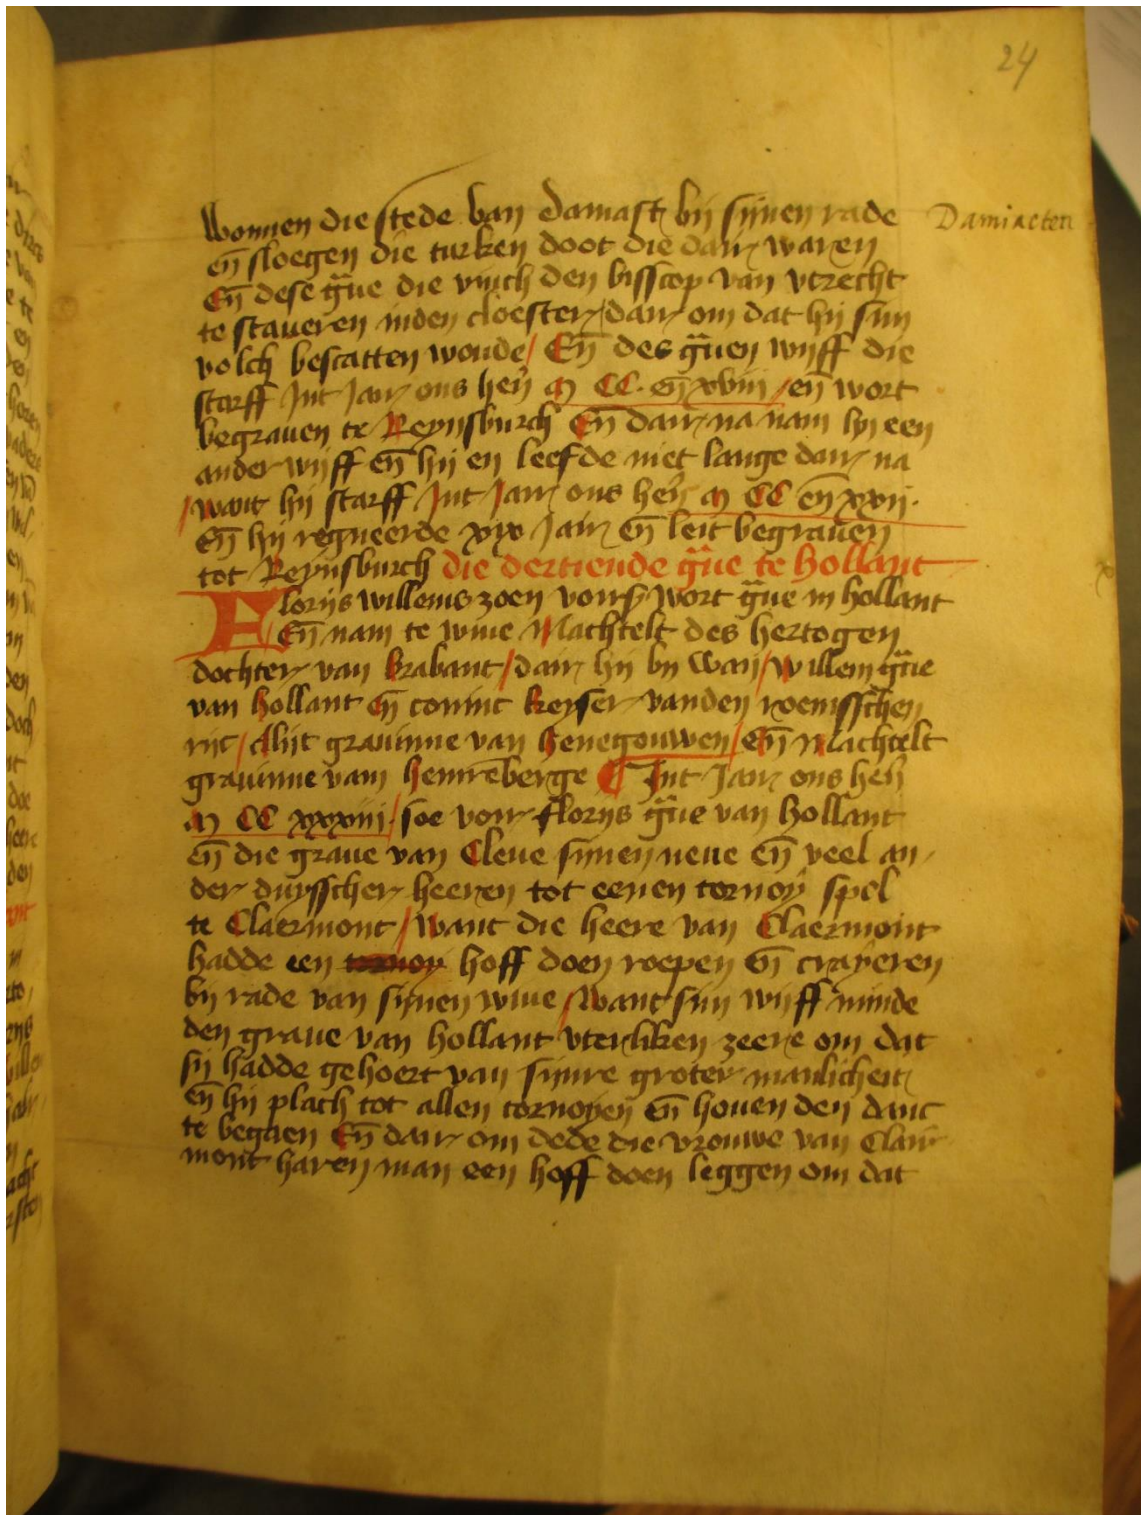 24
wonnen die stede van Damast bij sijnen rade
Damiaeten
eñ sloegen die turken doot die dair waren
Eñ dese g̃ue die vinch den bisscop van vtrecht
te staueren inden cloester / dair om dat hij sijn
volch bescatten woude / Eñ des g̃uen wijff die
starff Int Jair ons heñ M CC. eñ xviii / eñ wort
begrauen te Reynsburch Eñ dair na nam hij een
ander wijff eñ hij en leefde niet lange dair na
/ want hij starff Int Jair ons heñ M CC eñ xxii.
Eñ hij regneerde xix Jair eñ leit begrauen
tot Reynsburch die dertiende g̃ue te hollant
Florijs willems zoen vors wort g̃ue in hollant
Eñ nam te wiue Machtelt des hertogen
dochter van brabant / dair hij bij wan / willem g̃ue
van hollant eñ coninc keyser vanden roemsschen
rijc / Alijt grauinne van henegouwen / Eñ Machtelt
grauinne vam hennēberge Int Jair ons heñ
M CC xxxiiii / soe voir florijs g̃ue van hollant
eñ die graue van Cleue sijnen neue eñ veel an
der duysscher heeren tot eenen tornoy spel
te Claermont / want die heere van Claermont
hadde een tornoy hoff doen roepen eñ crayeren
bij rade van sijnen wiue / want sijn wijff minde
den graue van hollant vterliken zeere om dat
sij hadde gehoert van sijnre groter manlicheit
eñ hij plach tot allen tornoyen eñ houen den danc
te begaen Eñ dair om dede die vrouwe van Clair
mont haren man een hoff doen leggen om dat